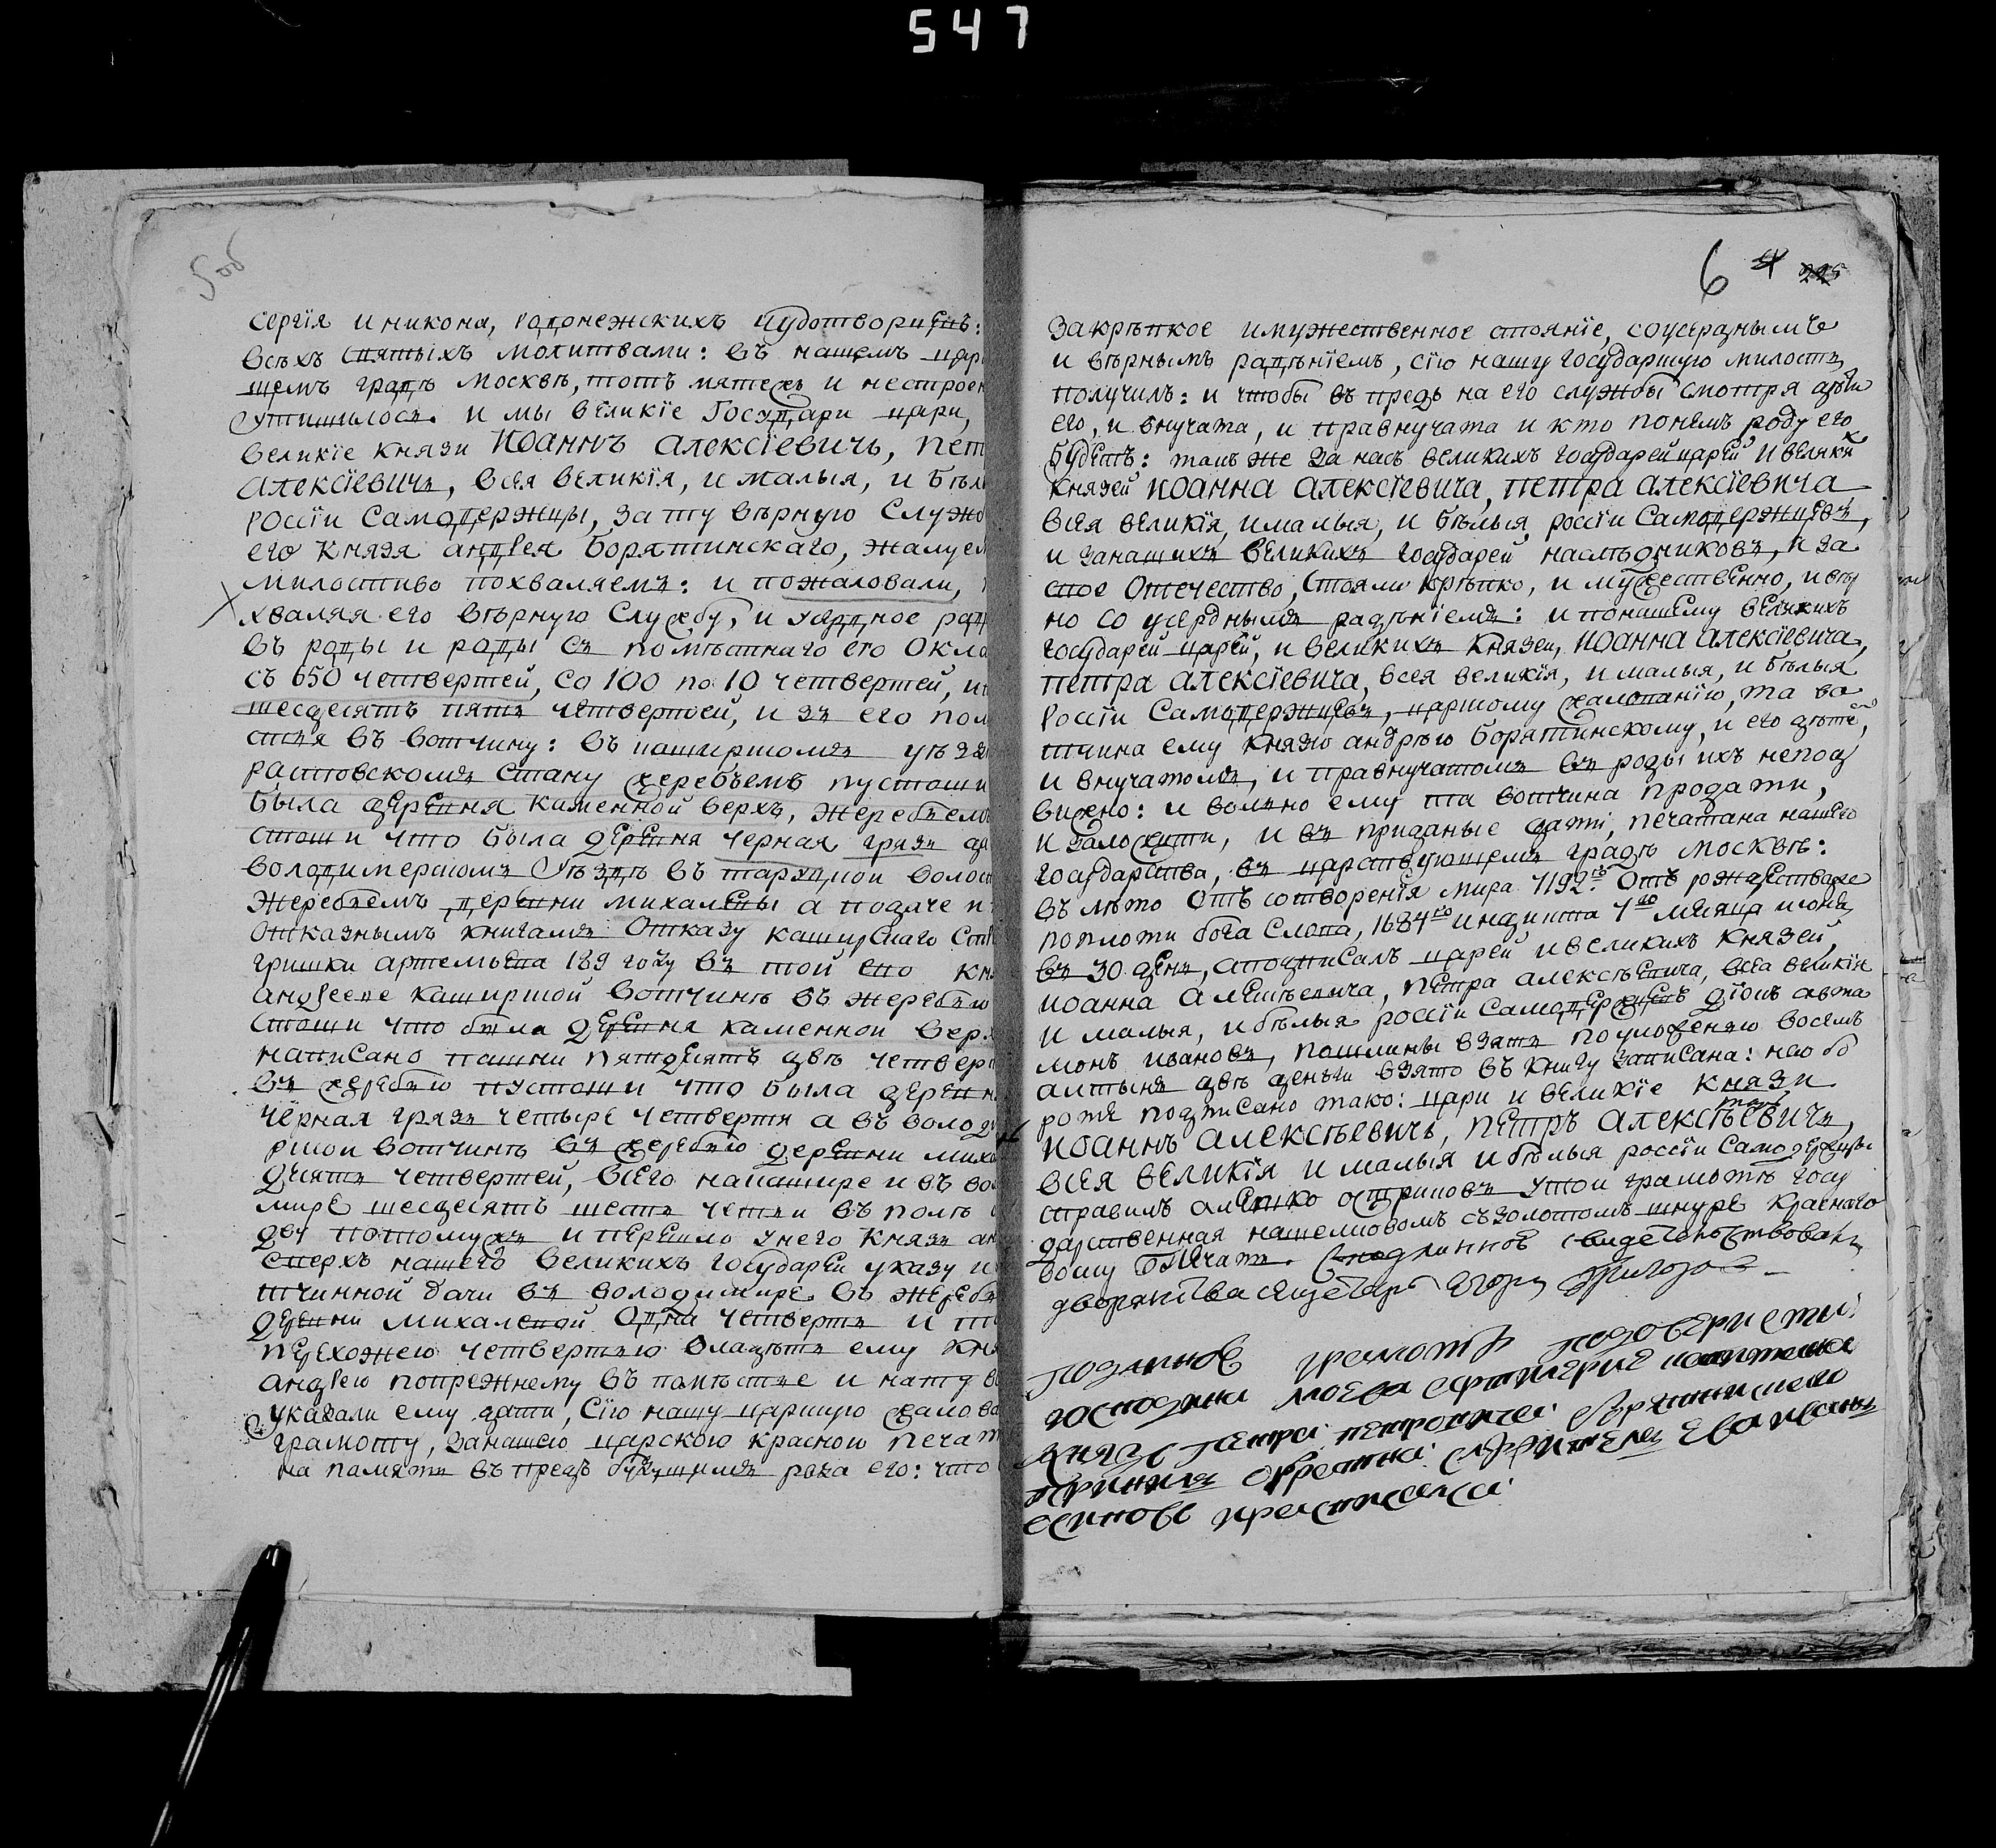 547
5об
сергїя и никона, радонежскихъ чудотворцевъ:
всѣхъ святыхъ молитвами: въ нашемъ цар
щемъ градѣ москвѣ, тотъ мятежъ и нестроен
утишилось. и мы великїе Государи цари,
великїе князи Иоаннъ Алексїевичь, пет
Алексїевичь, всея великїя, и малыя, и бѣл
россїи самодержцы, за ту вѣрную служ
его князя андрея борятинскаго, жалуем
милостиво похваляемъ: и пожаловали,
хваляя его вѣрную службу, и усердное рад
въ роды и роды съ помѣстнаго его окла
съ 650 четвертей, со 100 по 10 четвертей, и
шесдесятъ пять четвертей, и зъ его пом
стья въ вотчину: въ каширскомъ уѣзд
растовскомъ стану жеребьемъ пустоши
была деревня каменной верхъ, жеребьемъ
стоши что была деревня черная грязь
володимерскомъ уѣздѣ въ волос
жеребьемъ деревни михалевы а подаче
отказнымъ книгамъ отказу каширскаго
гришки артемьева 189 году въ той ево кн
андреевѣ каширской вотчинѣ въ жеребью
стоши что была деревня каменной вер
написано пашни пятдесятъ двѣ четвер
въ жеребью пустоши что была деревн
черная грязь четыре четверти а въ волод
рской вотчинѣ въ жеребью деревни миха
десять четвертей, всего накашире и въ во
мире шесдесятъ шесть чети въ полѣ
двѣ потомужъ и перешло унего князь ан
сверхъ нашего великихъ государей указу и
тчинной дачи въ володимире въ жереб
деревни михалевой одна четверть и
перехожею четвертью владѣть ему кня
андрею попрежнему въ помѣстье и нату в
указали ему дати, сїю нашу царскую жалова
грамоту, занашею царскою красною печат
на память въ предь будущимъ рода его: что
6 4 225
закрѣпкое имужественное стоянїе, соусерднымъ
и вѣрнымъ радѣнїемъ, сїю нашу государскую милость
получилъ: и чтобы въ предь на его службы смотря дѣти
его, и внучата, и правнучата и кто понемъ роду его
будетъ: такъ же за насъ великихъ государей царей и велики
князей Иоанна Алексїевича, петра алексїевича
всея великїя, и малыя, и бѣлыя россїи самодержцевъ,
и занашихъ великихъ государей наслѣдниковъ, и за
свое отечество, стояли крѣпко, и мужественно, и вѣр
но со усерднымъ радѣнїемъ: и понашему великихъ
государей царей, и великихъ князей, Иоанна алексїевича,
петра алексїевича, всея великїя, и малыя, и бѣлыя
россїи самодержцевъ, царскому жалованїю, та во
тчина ему князю андрѣю борятинскому, и его дѣтемъ,
и внучатомъ, и правнучатомъ въ роды ихъ непод
вижно: и вольно ему та вотчина продати,
и заложити, и въ приданые дати, печатана нашего
государства, въ царствующемъ градѣ москвѣ:
въ лѣто отъ сотворенїя мира 7192го отъ рождества же
поплоти бога слова, 1684го индикта 7го месяца июня
въ 30 день, аподписалъ царей и великихъ князей,
иоанна алексѣевича, петра алексѣевича, всеа великїя
и малыя, и бѣлыя россїи самодержцевъ дїякъ авта
монъ ивановъ, пошлины взять поуложенью восемь
алтынъ двѣ деньги взято въ книгу записана: наобо
ротѣ подписано тако: цари и великїе князи
Иоаннъ алексѣевичь, петръ алексѣевичь,
всея великїя и малыя и бѣлыя россїи самодержцы
справилъ алешко утой грамотѣ госу
дарственная нашелковомъ сзолотомъ шнурѣ краснаго
воску печать. сподлинною свидетельствовалъ
дворянства секретарь
подлинною грамоту подоверности
господина моева
князя петра петровича борятинскаго
принялъ обратно служитель ево иванъ
осиповъ и росписался